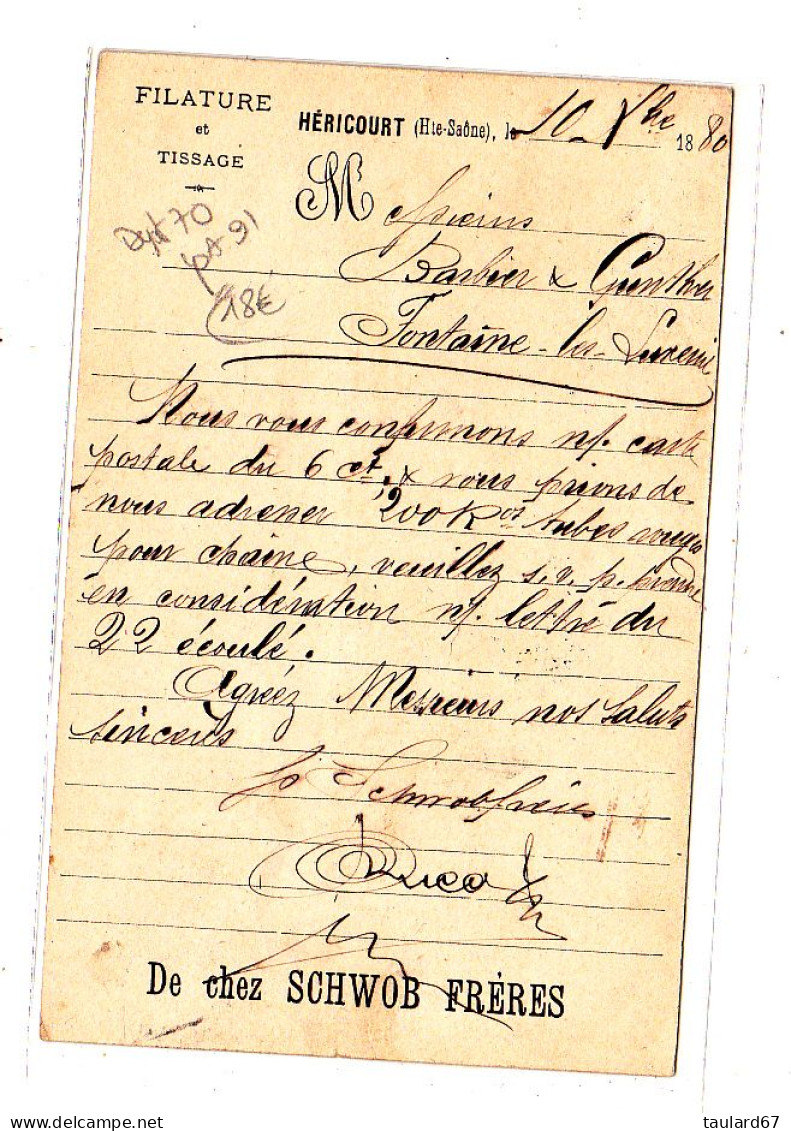 FILATURE
et
TISSAGE
HÉRICOURT (Hte-Saône), le 10 Xbre 1880
Dépt 70
pt 91
18€
Messieurs
Barbier & Gunther
Fontaine-les-Luxeuil
Nous vous confirmons n/. carte
postale du 6 ct, & vous prions de
nous adresser 200 Kos tubes rouges
pour chaine, veuillez s. v. p. prendre
en considération n/. lettre du
22 écoulé.
Agréez Messieurs nos saluts
sincères
p Schwob frères
De chez SCHWOB FRÉRES
taulard67